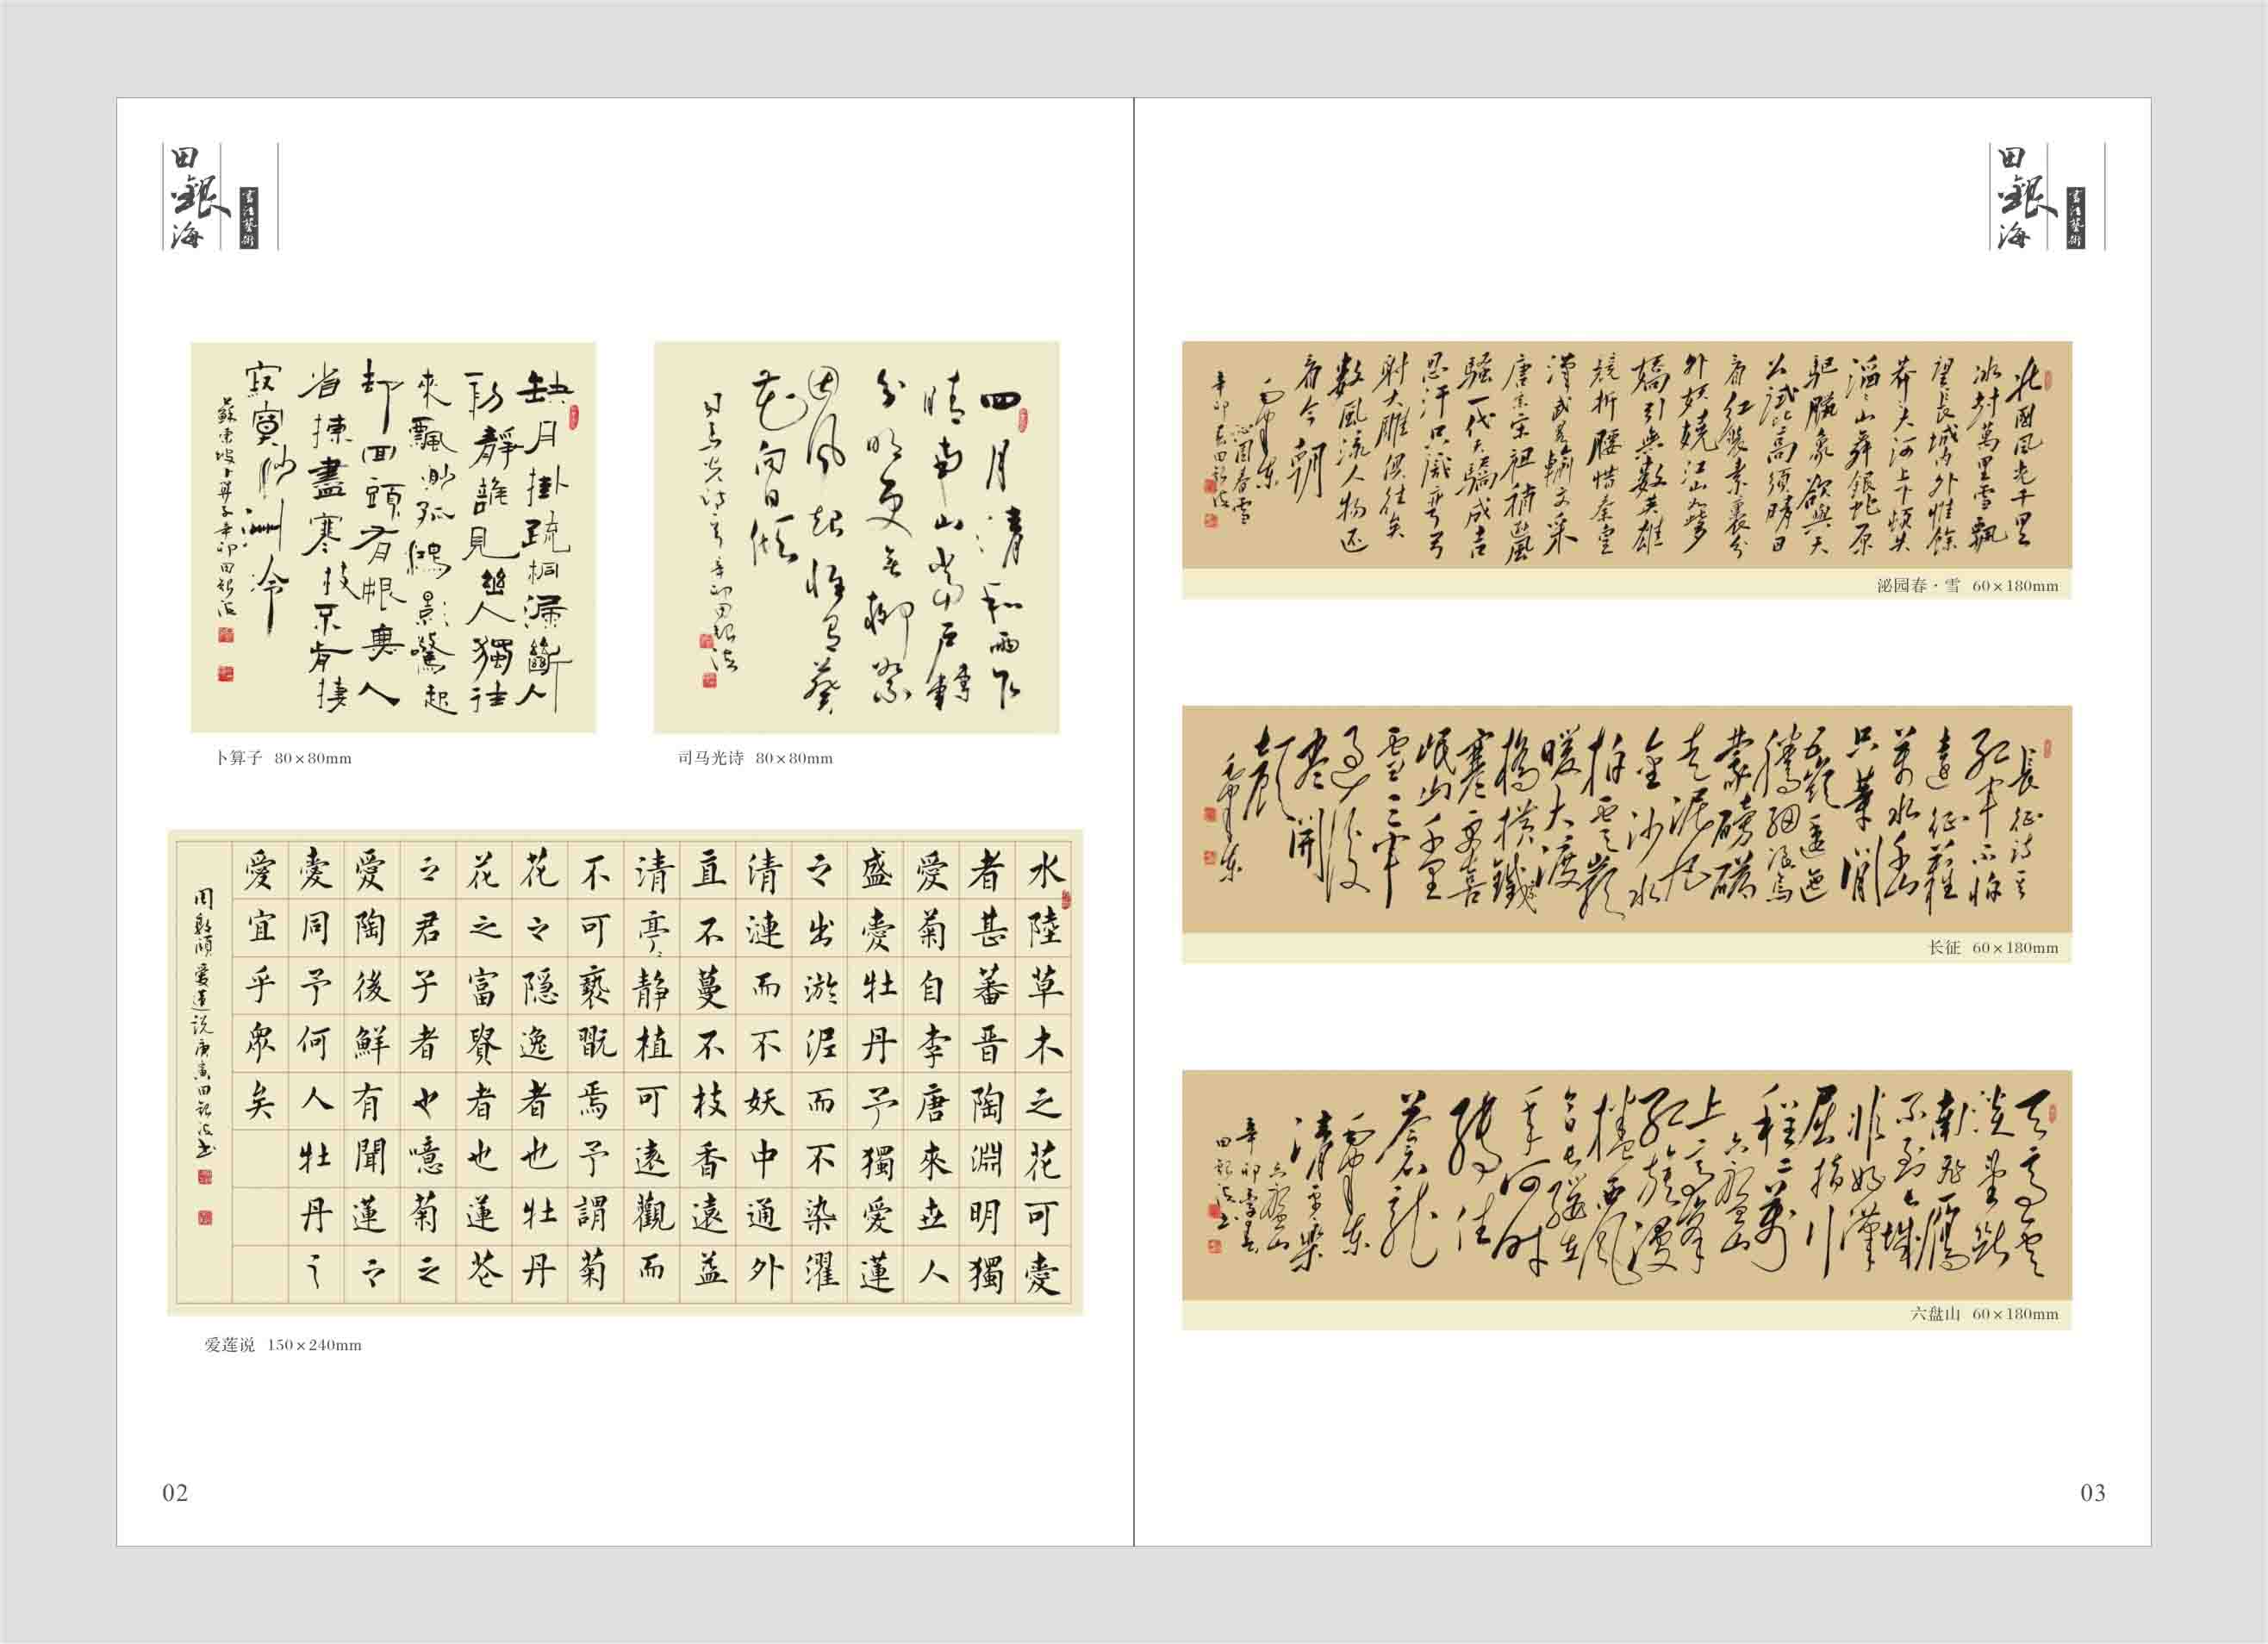 田銀海
書法藝術
缺月掛疏桐漏斷人
初靜誰見幽人獨往
來飄渺孤鴻影驚起
却回頭有恨無人
省揀盡寒枝不肯棲
寂寞沙洲冷
蘇東坡卜算子辛卯田銀海
卜算子 80×80mm
四月清和雨乍
晴南山當戶轉
分明更無柳絮
因風起惟有葵
花向日傾
司馬光詩一首 辛卯田銀海
司马光诗 80×80mm
水陸草木之花可愛
者甚蕃晋陶淵明獨
愛菊自李唐來世人
盛愛牡丹予獨愛蓮
之出淤泥而不染濯
清漣而不妖中通外
直不蔓不枝香遠益
清亭亭静植可遠觀而
不可褻翫焉予謂菊
花之隠逸者也牡丹
花之富貴者也蓮花
之君子者也噫菊之
愛陶後鮮有聞蓮之
愛同予何人牡丹之
愛宜乎眾矣
周敦頤愛蓮説庚寅田銀海书
爱莲说 150×240mm
02
田銀海
書法藝術
北國風光千里
冰封萬里雪飄
望長城内外惟餘
莽莽大河上下頓失
滔滔山舞銀蛇原
馳臘象欲與天
公試比高須晴日
看红裝素裹分
外妖嬈江山如此多
嬌引無數英雄
競折腰惜秦皇
漢武略輸文采
唐宗宋祖稍遜風
騷一代天驕成吉
思汗只識彎弓
射大雕俱往矣
數風流人物还
看今朝
毛泽东
沁園春雪
辛卯春田銀海
泌园春·雪 60×180mm
長征诗一首
红军不怕
遠征難
萬水千山
只等閒
五嶺逶迤
騰細浪烏
蒙磅礴
走泥丸
金沙水
拍雲崖
暖大渡
橋橫鐵
寒更喜
岷山千里
雪三军
過後
盡開
顏
毛泽东
长征 60×180mm
天高雲
淡望斷
南飛雁
不到長城
非好漢
屈指行
程二萬
六盤山
上高峰
红旗漫
捲西風
今日長纓在
手何時
縛住
蒼龍
毛泽东
清平樂
六盤山
辛卯
田銀海书
六盘山 60×180mm
03